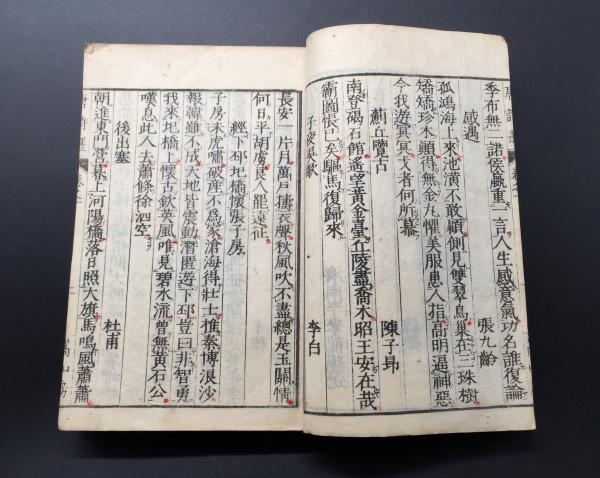 季布無二諾侯嬴重一言人生感意氣功名誰復論
感遇
張九齡
孤鴻海上來池潢不敢顧側見雙翠鳥巢在三珠樹
矯矯珍木巓得無金丸懼美服患人指高明逼神惡
今我遊冥冥弋者何所慕
薊丘覽古
陳子昻
南登碣石館遙望黃金臺丘陵盡喬木昭王安在哉
霸圖悵已矣驅馬復歸來
子夜吳歌
李白
長安一片月萬戶擣衣聲秋風吹不盡總是玉關情
何日平胡虜良人罷遠征
經下邳圯橋懷張子房
子房未虎嘯破產不爲家滄海得壯士椎秦博浪沙
報韓雖不成天地皆震動潛匿遊下邳豈曰非智勇
我來圯橋上懷古欽英風唯見碧水流曾無黃石公
嘆息此人去蕭條徐泗空
後出塞
杜甫
朝進東門營暮上河陽橋落日照大旗馬鳴風蕭蕭